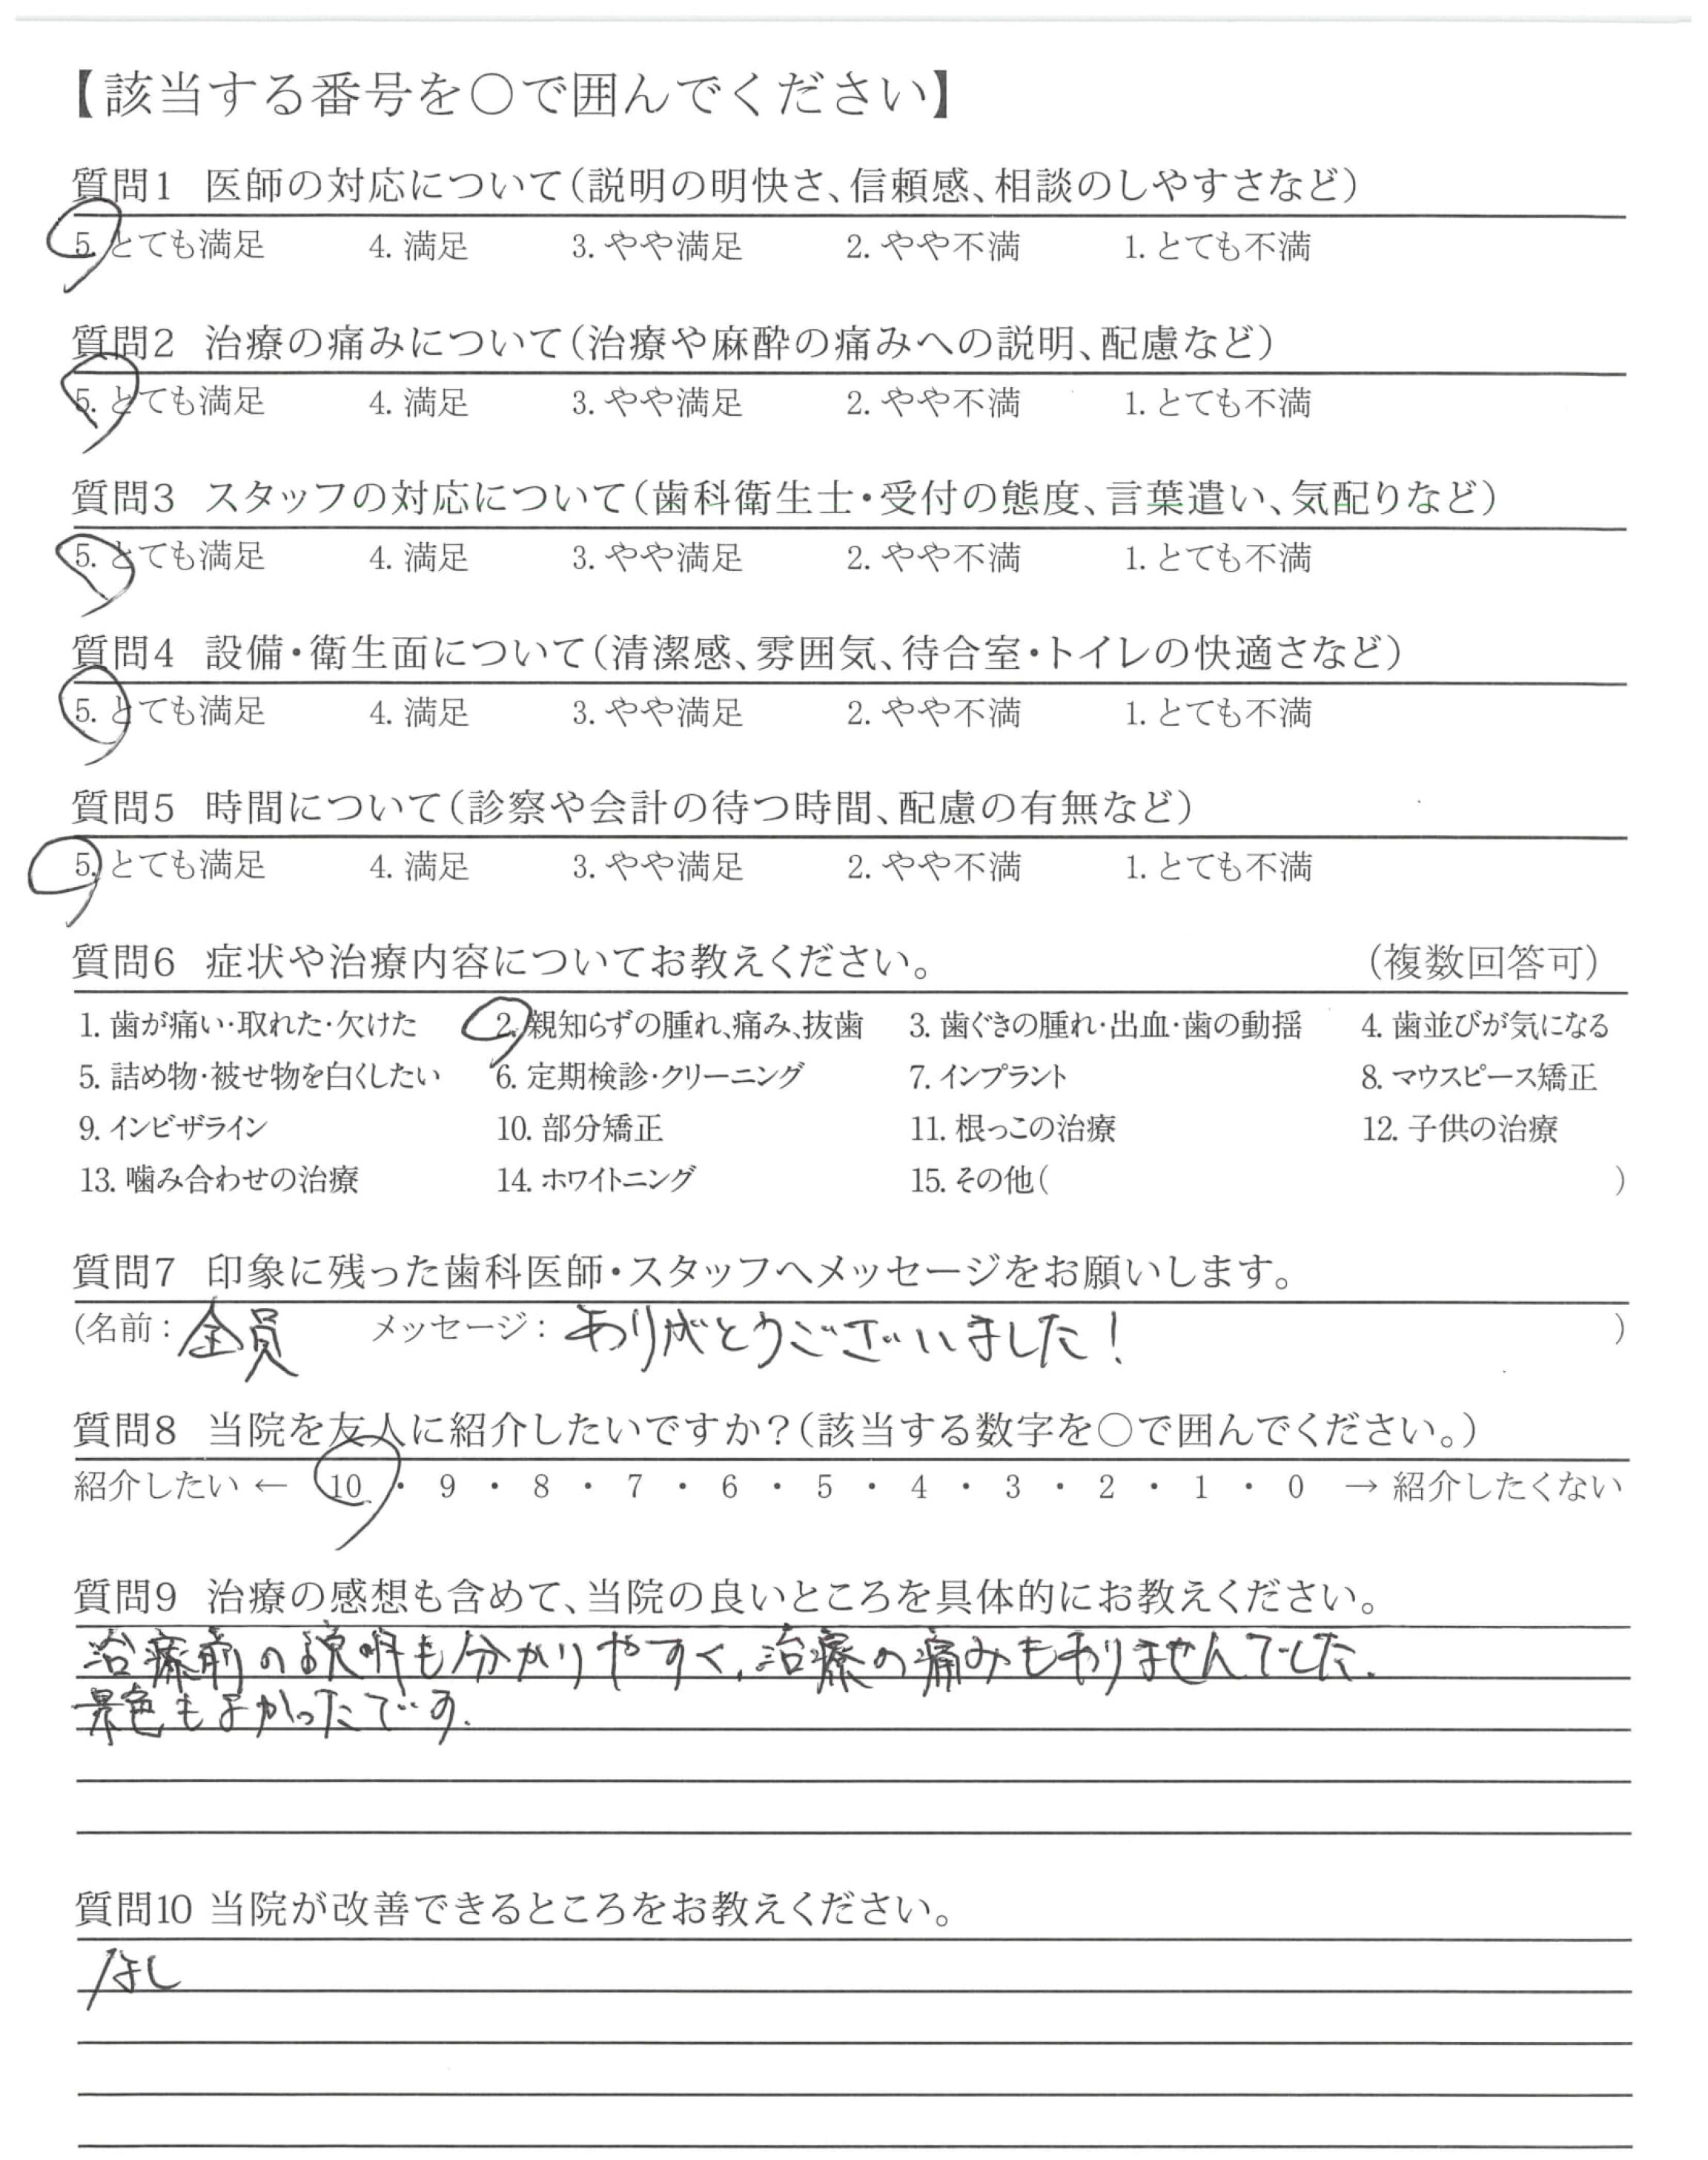 【該当する番号を○で囲んでください】
質問1 医師の対応について(説明の明快さ、信頼感、相談のしやすさなど)
5. とても満足 4. 満足 3. やや満足 2. やや不満 1. とても不満
質問2 治療の痛みについて(治療や麻酔の痛みへの説明、配慮など)
5. とても満足 4. 満足 3. やや満足 2. やや不満 1. とても不満
質問3 スタッフの対応について(歯科衛生士・受付の態度、言葉遣い、気配りなど)
5. とても満足 4. 満足 3. やや満足 2. やや不満 1. とても不満
質問4 設備・衛生面について(清潔感、雰囲気、待合室・トイレの快適さなど)
5. とても満足 4. 満足 3. やや満足 2. やや不満 1. とても不満
質問5 時間について(診察や会計の待つ時間、配慮の有無など)
5. とても満足 4. 満足 3. やや満足 2. やや不満 1. とても不満
質問6 症状や治療内容についてお教えください。 (複数回答可)
1. 歯が痛い・取れた・欠けた 2. 親知らずの腫れ、痛み、抜歯 3. 歯ぐきの腫れ・出血・歯の動揺 4. 歯並びが気になる
5. 詰め物・被せ物を白くしたい 6. 定期検診・クリーニング 7. インプラント 8. マウスピース矯正
9. インビザライン 10. 部分矯正 11. 根っこの治療 12. 子供の治療
13. 噛み合わせの治療 14. ホワイトニング 15. その他( )
質問7 印象に残った歯科医師・スタッフへメッセージをお願いします。
(名前: 全員 メッセージ: ありがとうございました! )
質問8 当院を友人に紹介したいですか?(該当する数字を○で囲んでください。)
紹介したい ← 10 ・ 9 ・ 8 ・ 7 ・ 6 ・ 5 ・ 4 ・ 3 ・ 2 ・ 1 ・ 0 → 紹介したくない
質問9 治療の感想も含めて、当院の良いところを具体的にお教えください。
治療前の説明も分かりやすく、治療の痛みもありませんでした。
景色もよかったです。
質問10 当院が改善できるところをお教えください。
なし